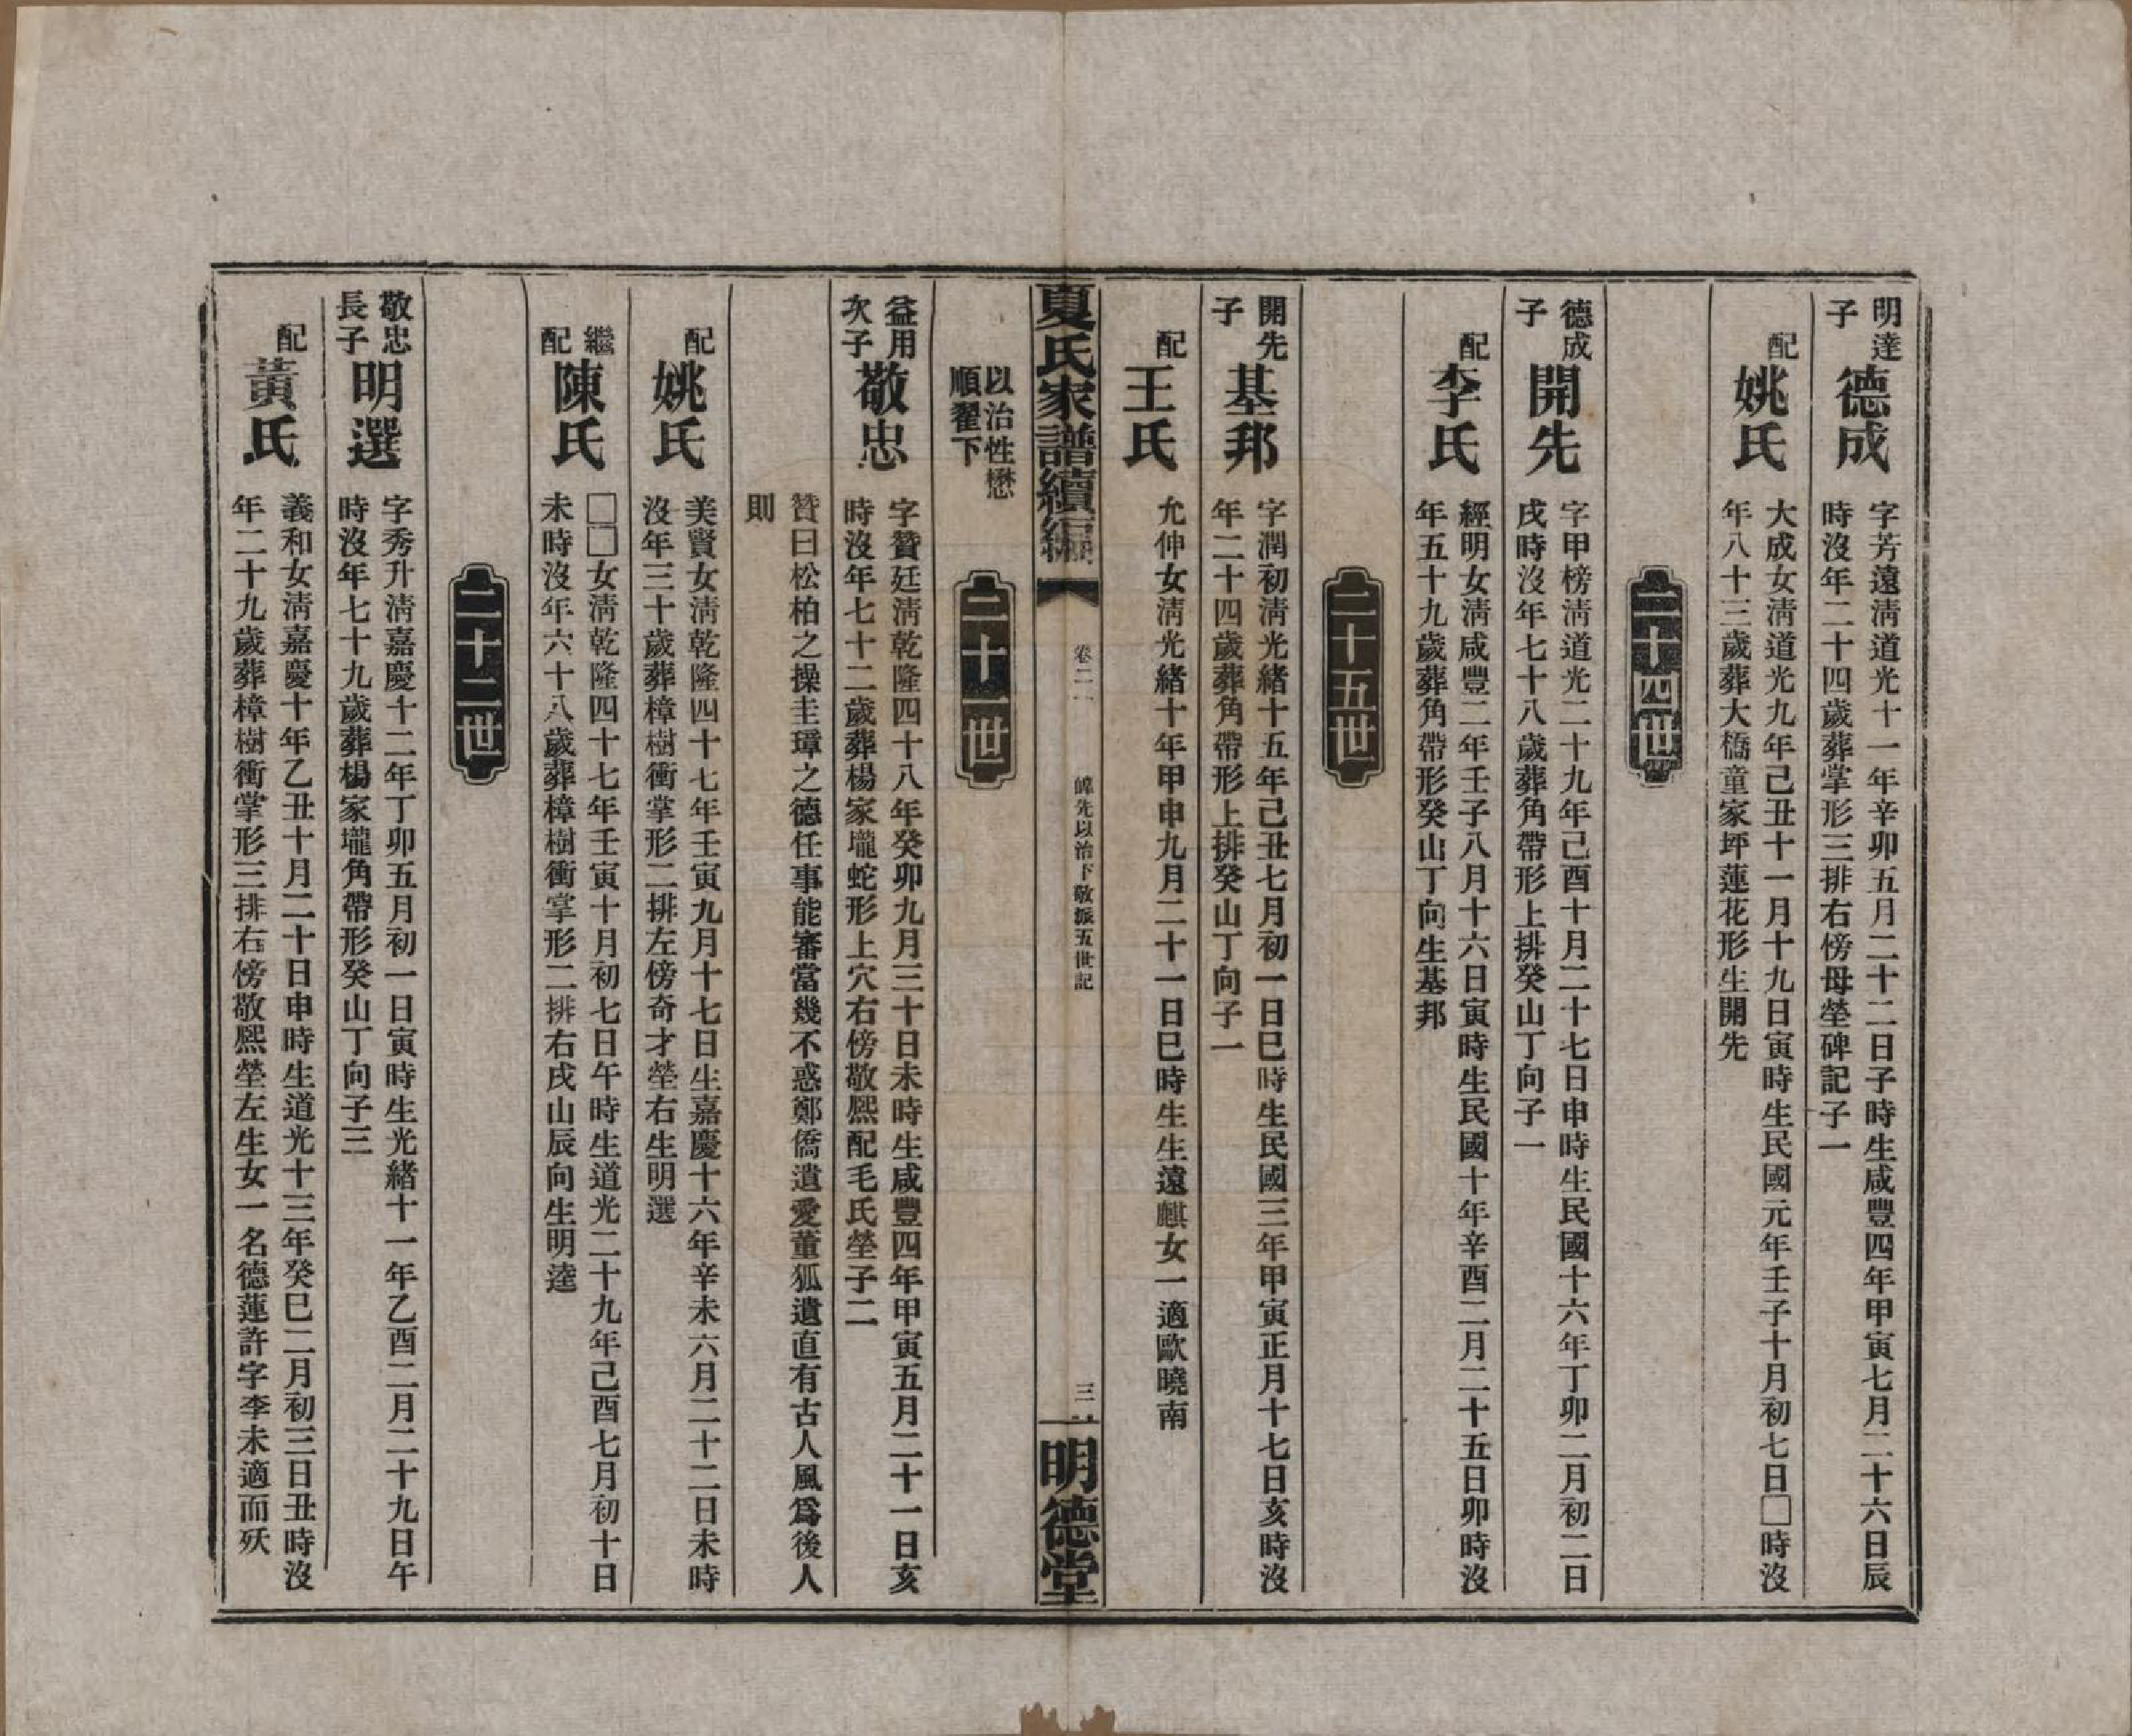 明達子
德成
字芳遠淸道光十一年辛卯五月二十二日子時生咸豐四年甲寅七月二十六日辰
時沒年二十四歲葬掌形三排右傍母塋碑記子一
配
姚氏
大成女淸道光九年己丑十一月十九日寅時生民國元年壬子十月初七日□時沒
年八十三歲葬大橋童家坪蓮花形生開先
二十四世
德成子
開先
字甲榜淸道光二十九年己酉十月二十七日申時生民國十六年丁卯二月初二日
戌時沒年七十八歲葬角帶形上排癸山丁向子一
配
李氏
經明女淸咸豐二年壬子八月十六日寅時生民國十年辛酉二月二十五日卯時沒
年五十九歲葬角帶形癸山丁向生基邦
二十五世
開先子
基邦
字潤初淸光緒十五年己丑七月初一日巳時生民國三年甲寅正月十七日亥時沒
年二十四歲葬角帶形上排癸山丁向子一
配
王氏
允仲女淸光緒十年甲申九月二十一日巳時生生遠麒女一適歐曉南
夏氏家譜續編
卷二
先以治下敬振五世記
三
明德堂
以治性懋
順翟下
二十一世
益用次子
敬忠
字贊廷淸乾隆四十八年癸卯九月三十日未時生咸豐四年甲寅五月二十一日亥
時沒年七十二歲葬楊家壠蛇形上穴右傍敬熙配毛氏塋子二
贊曰松柏之操圭璋之德任事能審當幾不惑鄭僑遺愛董狐遺直有古人風爲後人
則
配
姚氏
美賢女淸乾隆四十七年壬寅九月十七日生嘉慶十六年辛未六月二十二日未時
沒年三十歲葬樟樹衝掌形二排左傍奇才塋右生明選
繼配
陳氏
□□女淸乾隆四十七年壬寅十月初七日午時生道光二十九年己酉七月初十日
未時沒年六十八歲葬樟樹衝掌形二排右戌山辰向生明逵
二十二世
敬忠長子
明選
字秀升淸嘉慶十二年丁卯五月初一日寅時生光緒十一年乙酉二月二十九日午
時沒年七十九歲葬楊家壠角帶形癸山丁向子三
配
黃氏
義和女淸嘉慶十年乙丑十月二十日申時生道光十三年癸巳二月初三日丑時沒
年二十九歲葬樟樹衝掌形三排右傍敬熙塋左生女一名德蓮許字李未適而殀